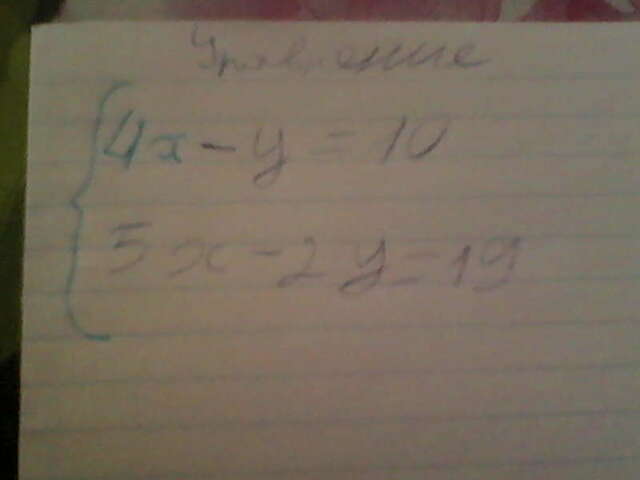 Уравнение
4x - y = 10
5x - 2y = 19